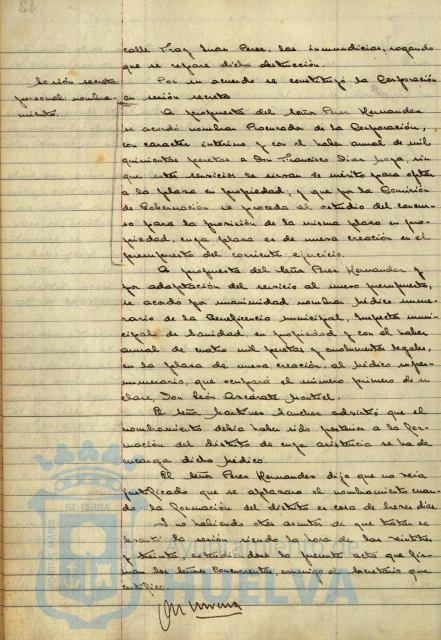 calle Fray Juan Perez, las inmundicias, rogando
que se repare dicha obstrucción.
Sesión secreta
personal: nombra-
miento.
Por su acuerdo se constituyó la Corporación
en sesión secreta
A propuesta del Señor Perez Hernandez
se acordó nombrar Procurador de la Corporación,
con caracter interino y con el haber anual de mil
quinientas pesetas a Don Francisco Diaz, sin
que estos servicios le sirvan de mérito para optar
a la plaza en propiedad; y que por la Comisión
de Gobernación se proceda al estudio del concur-
so para la provisión de la misma plaza en pro-
piedad, cuya plaza es de nueva creación en el
presupuesto del corriente ejercicio.
A propuesta del Señor Perez Hernandez y
por adaptación del servicio al nuevo presupuesto,
se acordó por unanimidad nombrar Médico nume-
rario de la Beneficencia municipal, Inspector muni-
cipal de Sanidad, en propiedad y con el haber
anual de cuatro mil pesetas y emolumentos legales,
en la plaza de nueva creación, al Médico super-
numerario, que ocupará el número primero de su
clase, Don León Azcárate Montiel.
El Señor Martinez Sanchez advirtió que el
nombramiento debia haber sido posterior a la for-
mación del distrito de cuya asistencia se ha de
encargar dicho Médico.
El Señor Perez Hernandez dijo que no veia
justificado que se aplazara el nombramiento cuan-
do la formación del distrito es cosa de breves dias.
Y no habiendo otros asuntos de que tratar se
levantó la sesión siendo la hora de las veintitres
y treinta, extendiendose la presente acta que fir-
man los Señores Concurrentes, conmigo el Secretario que
certifico.
HUELVA